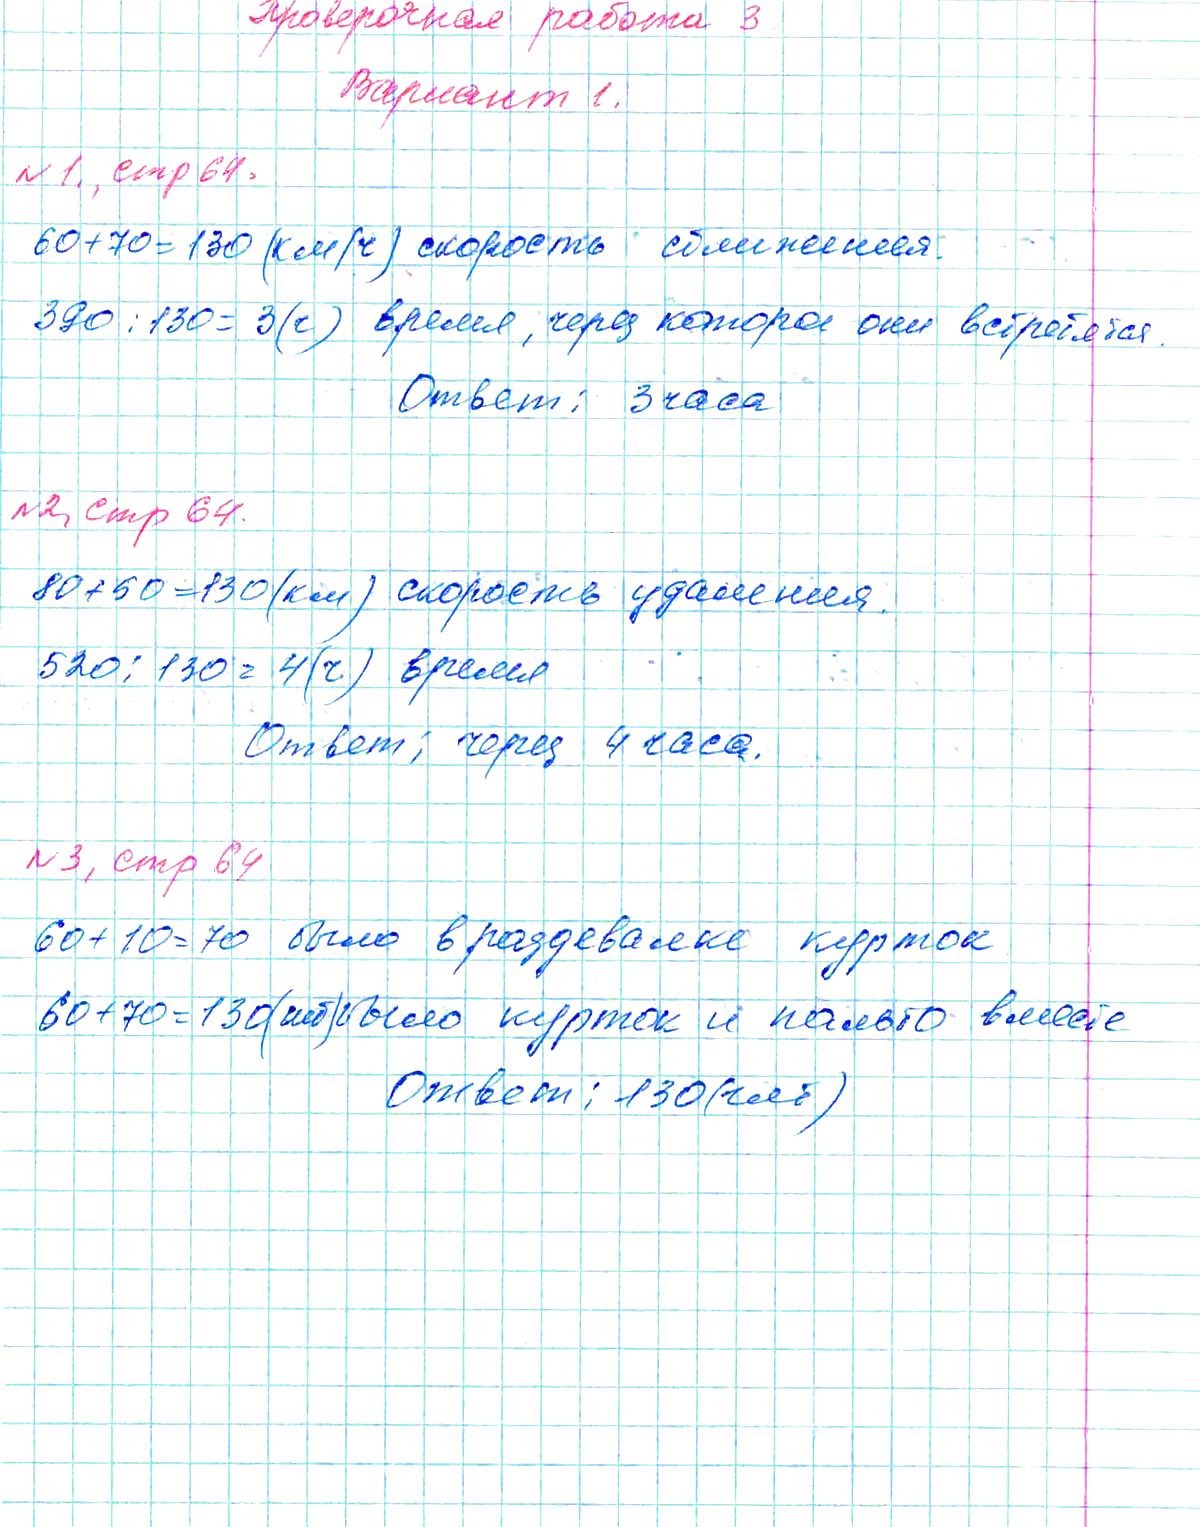 Проверочная работа 3
Вариант 1.
№1., стр 64.
60+70=130 (км/ч) скорость сближения.
390:130=3(ч) время, через которое они встретятся.
Ответ: 3 часа
№2, стр 64.
80+50=130(км) скорость удаления.
520:130=4(ч) время
Ответ: через 4 часа.
№3, стр 64
60+10=70 было в раздевалке курток
60+70=130(шт) было курток и пальто вместе
Ответ: 130(шт)